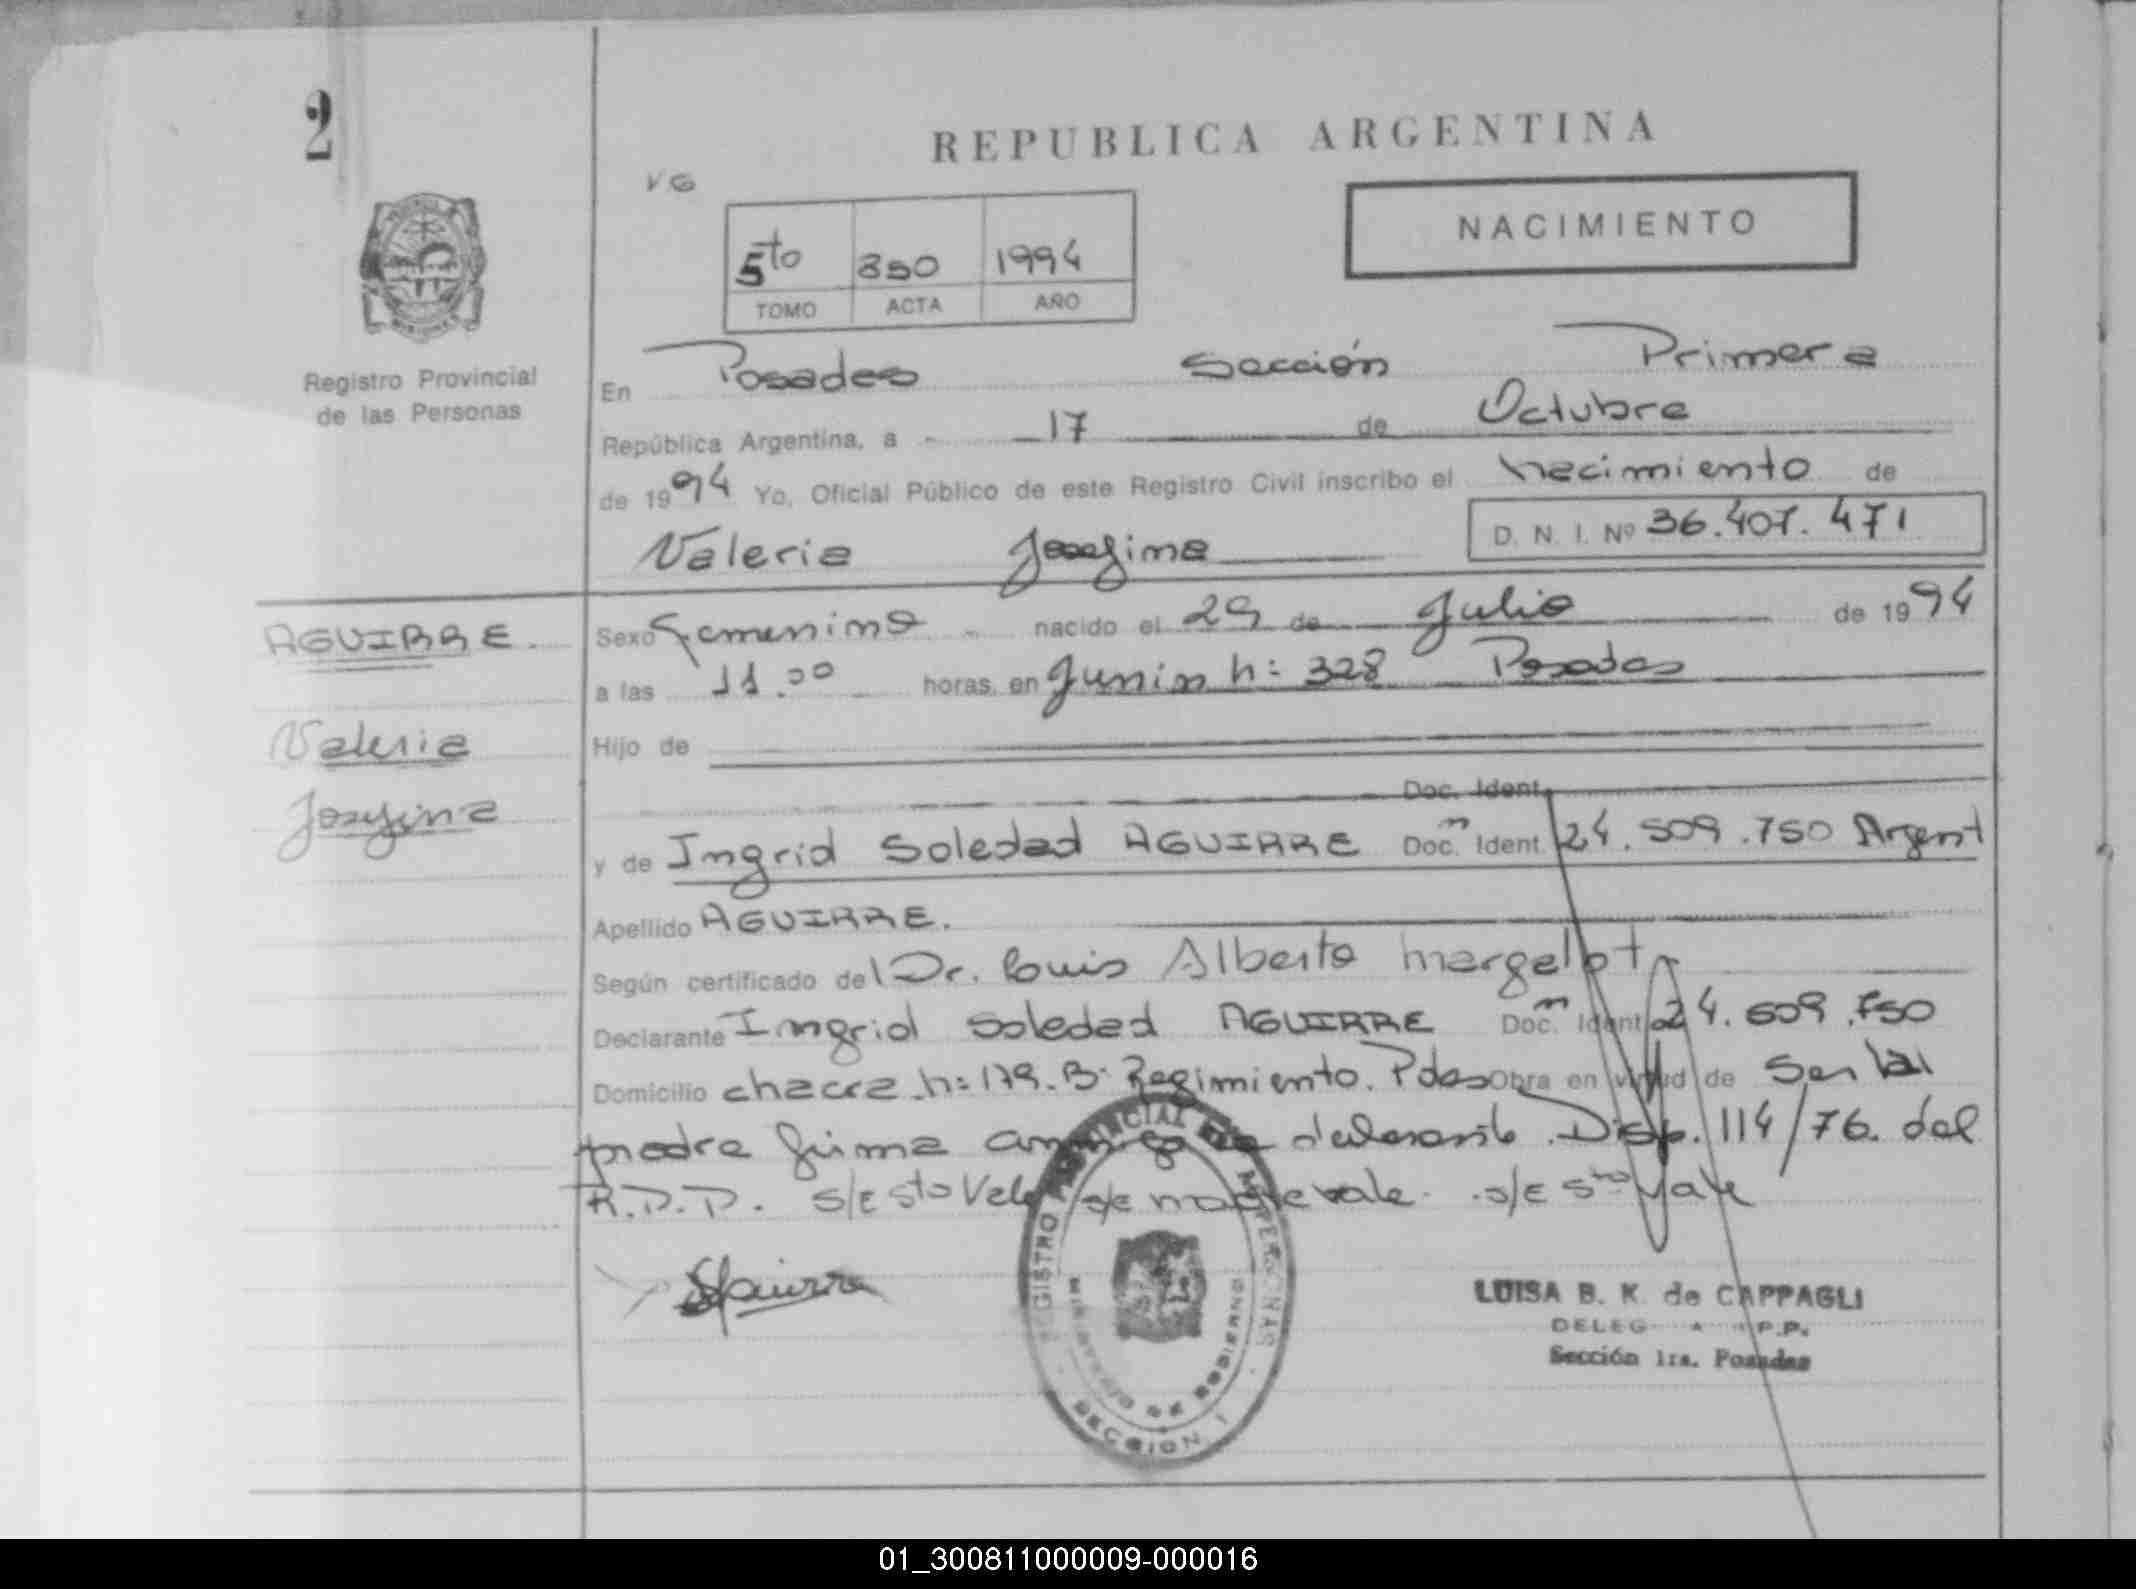 2
REPUBLICA ARGENTINA
VG
NACIMIENTO
5to 350 1994
TOMO ACTA AÑO
Registro Provincial
de las Personas
En Posadas Sección Primera
República Argentina, a 17 de Octubre
de 1994 Yo, Oficial Público de este Registro Civil inscribo el nacimiento de
Valeria Josefina D. N. I. Nº 36.407.471
AGUIRRE.
Valeria
Josefina
Sexo Femenino nacido el 29 de Julio de 1994
a las 11.00 horas, en Junin n: 328 Posadas
Hijo de
Doc. Ident.
y de Ingrid Soledad AGUIRRE Doc. n Ident. 24.509.750 Argent
Apellido AGUIRRE.
Según certificado del Dr. Luis Alberto Margelot
Declarante Ingrid Soledad AGUIRRE Doc. n Ident. 24.509.750
Domicilio chacra n: 179. B. Regimiento. Pdas Obra en virtud de Ser la
madre firma declarante. Disp. 114/76. del
R.P.P. s/E sto Vale s/e madre vale. s/E sto Vale
REGISTRO PROVINCIAL DE LAS PERSONAS
MINISTERIO DE GOBIERNO
SECCION 1
LUISA B. K. de CAPPAGLI
DELEG P.P.
Sección 1ra. Posadas
01_300811000009-000016